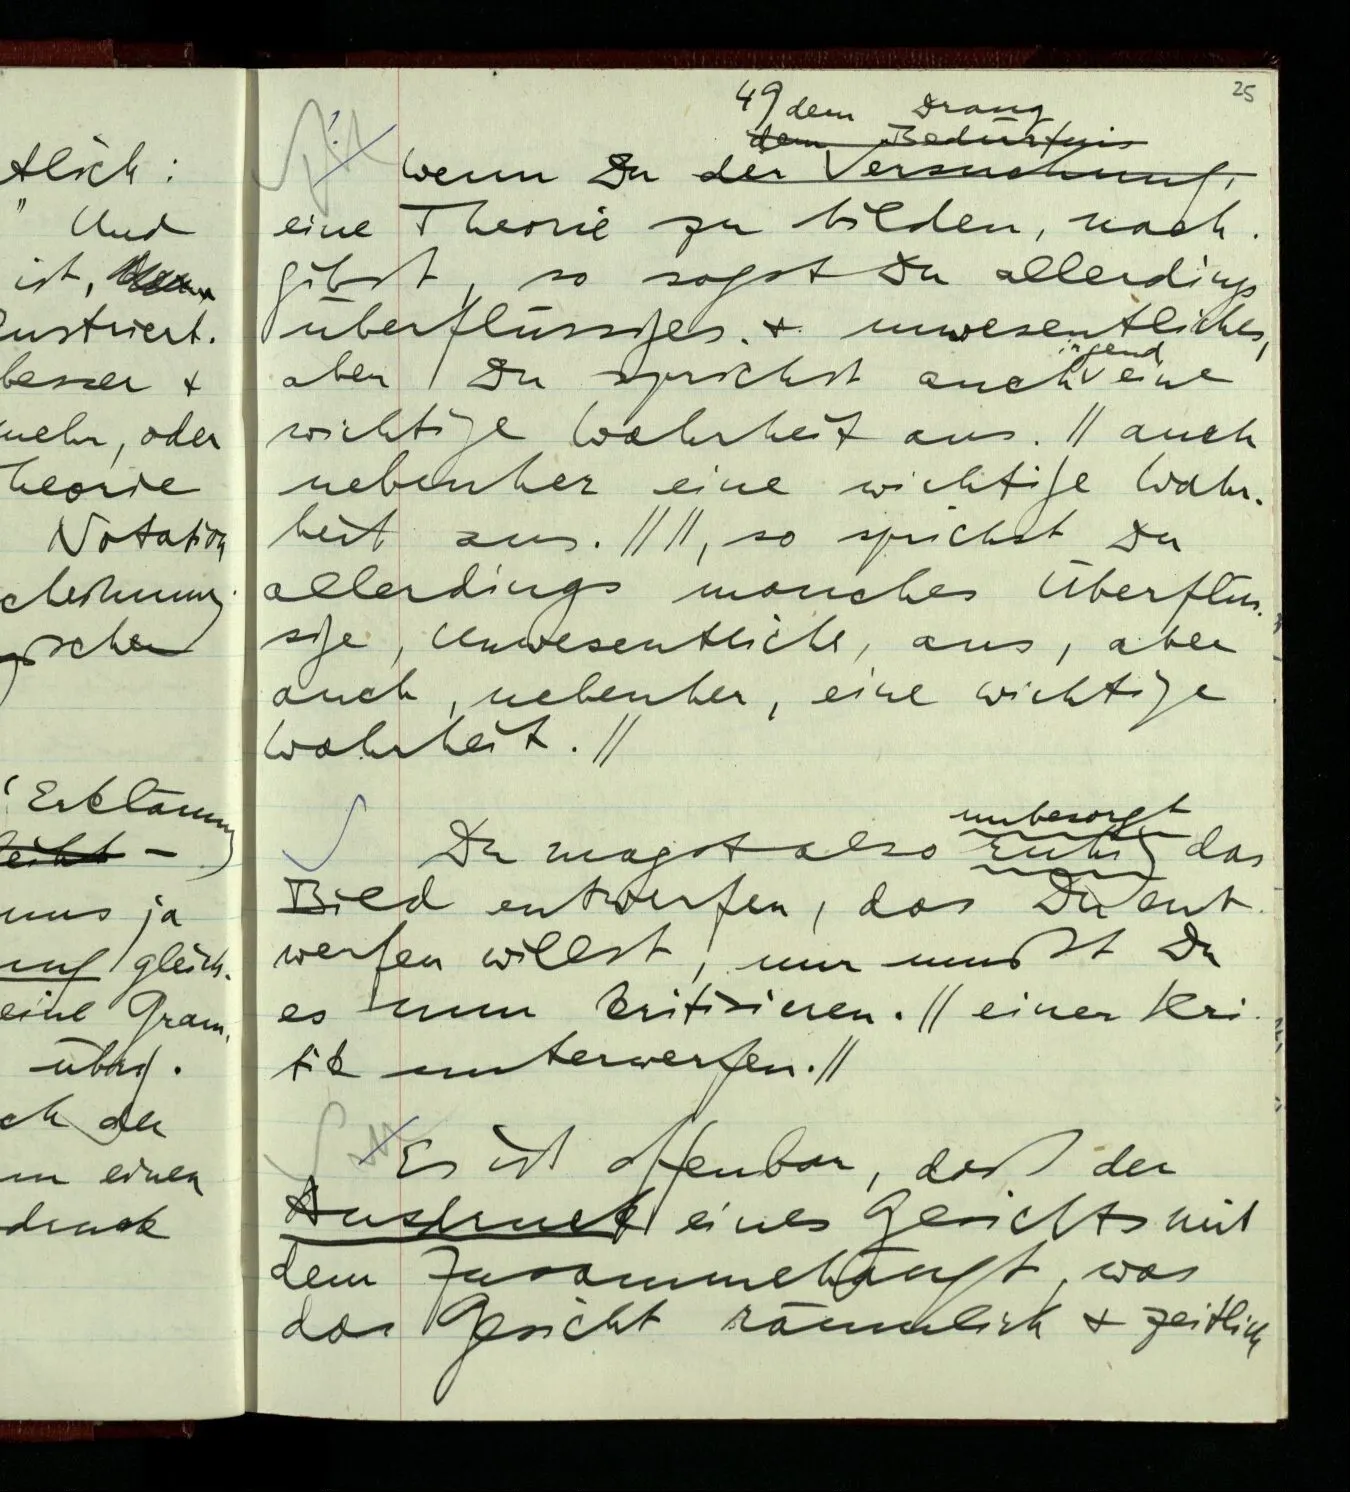 tlich:
" Und
ist,
lustriert.
besser &
mehr, oder
heorie
Notation
scheinung
gischen
Erklärung
leiht –
uns ja
ung gleich.
eine Gram.
übrig.
ch der
m einen
druck
25
49 dem Drang
dem Bedürfnis
Wenn Du der Versuchung,
eine Theorie zu bilden, nach.
gibst, so sagst Du allerdings
überflüssiges & unwesentliches,
irgend
aber Du sprichst auch eine
wichtige Wahrheit aus. // auch
nebenher eine wichtige Wahr.
heit aus. // //, so sprichst Du
allerdings manches Überflüs.
sige, Unwesentliche, aus, aber
auch, nebenher, eine wichtige
Wahrheit. //
unbesorgt
Du magst also ruhig das
Bild entwerfen, das Du ent.
werfen willst, nur mußt Du
es nun kritisieren. // einer Kri.
tik unterwerfen. //
Es ist offenbar, daß der
Ausdruck eines Gesichts mit
dem zusammenhängt, was
das Gesicht räumlich & zeitlich